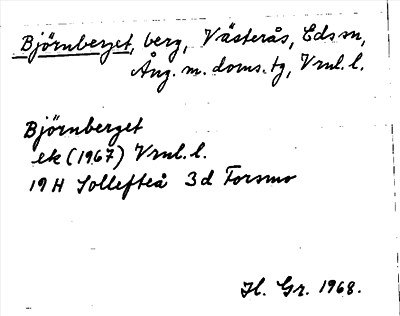 Björnberget, berg, Västerås, Eds sn,
Ång. m. doms. tg, Vrnl. l.
Björnberget
ek (1967) Vrnl. l.
19 H Sollefteå 3d Forsmo
H. Gr. 1968.